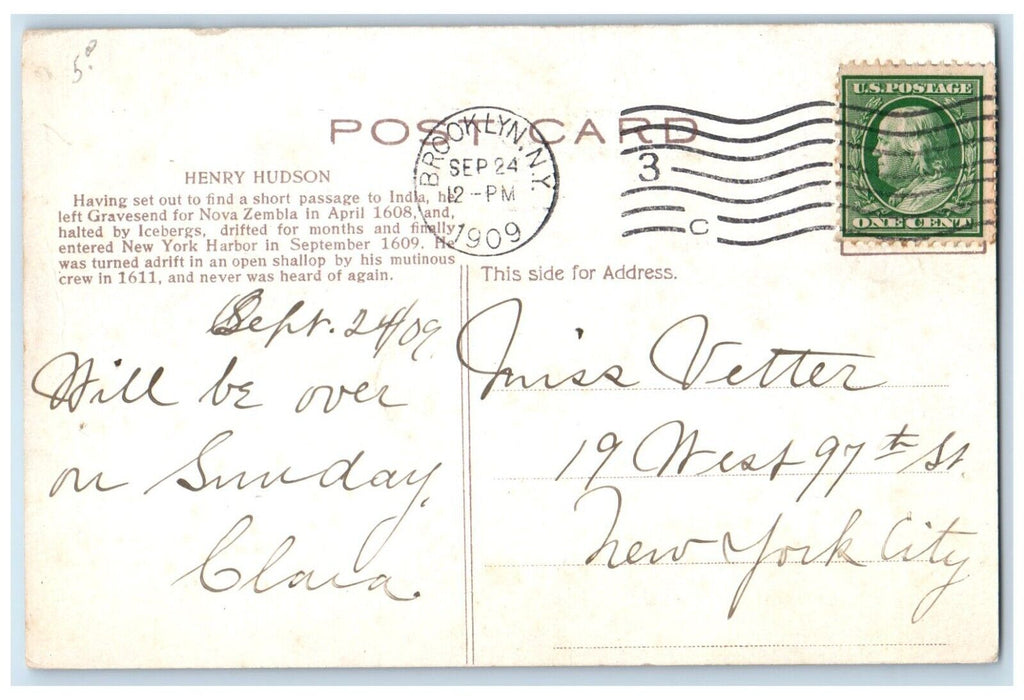 5.8
POST CARD
BROOKLYN, N.Y.
SEP 24
12 - PM
1909
3
C
U.S. POSTAGE
ONE CENT
HENRY HUDSON
Having set out to find a short passage to India, he
left Gravesend for Nova Zembla in April 1608, and,
halted by Icebergs, drifted for months and finally
entered New York Harbor in September 1609. He
was turned adrift in an open shallop by his mutinous
crew in 1611, and never was heard of again.
This side for Address.
Sept. 24/09.
Will be over
on Sunday.
Clara.
Miss Vetter
19 West 97th St.
New York City